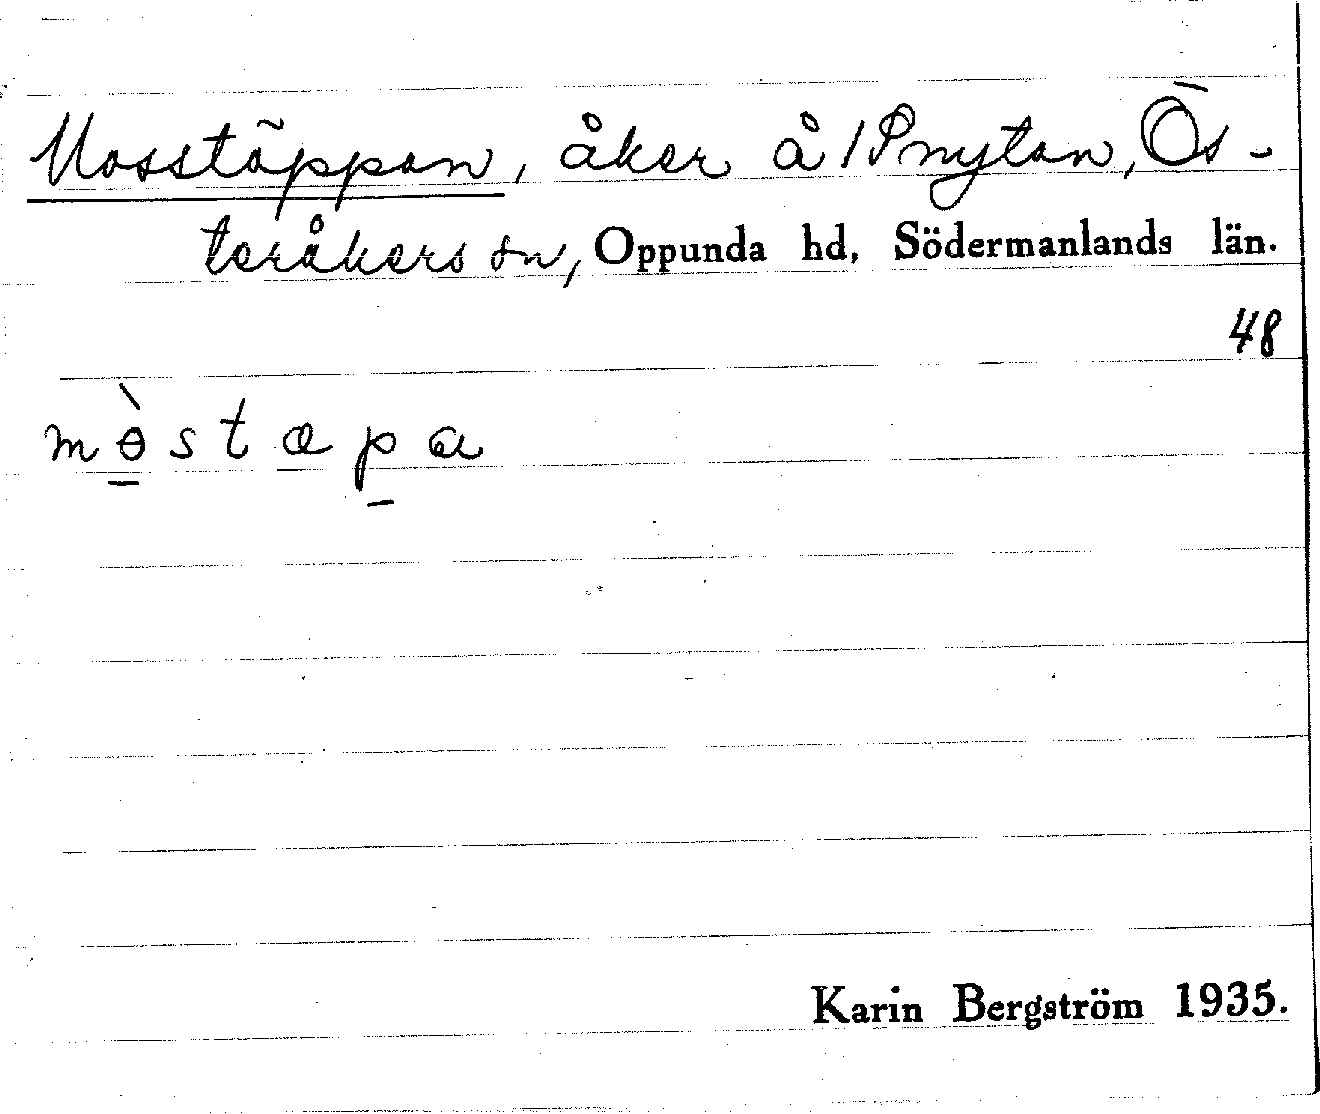 Mosstäppan, åker å 1 Pnytan, Ös-
teråkers sn, Oppunda hd, Södermanlands län.
48
mòstæpa
Karin Bergström 1935.